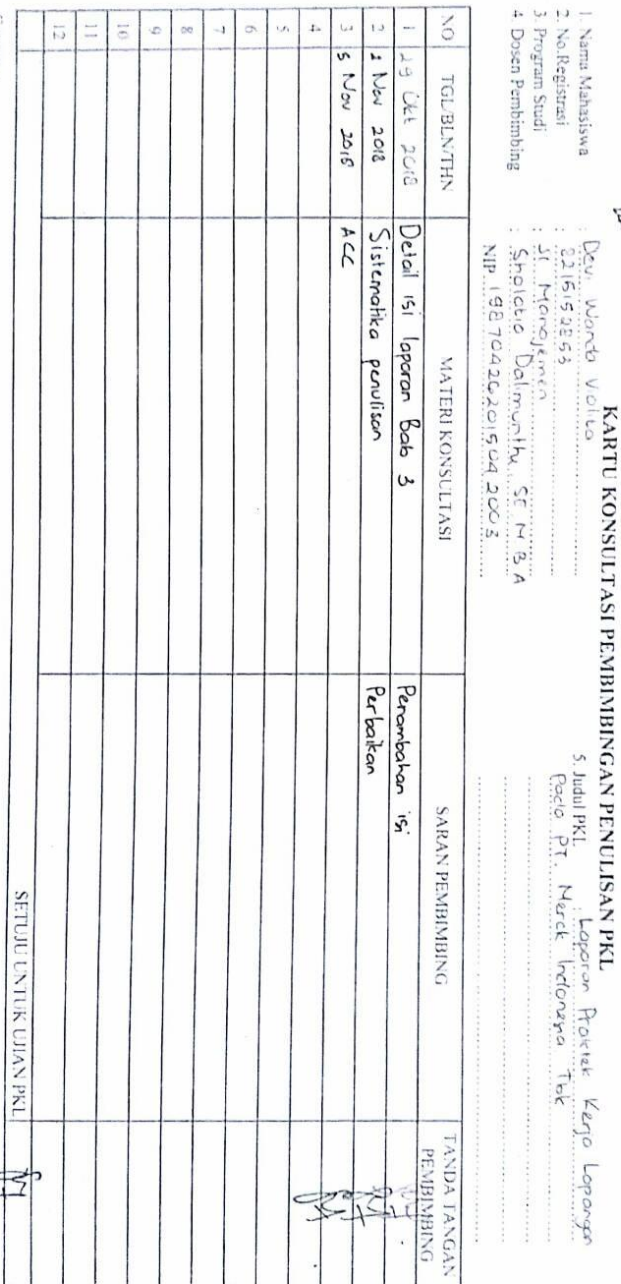 KARTU KONSULTASI PEMBIMBINGAN PENULISAN PKL
1. Nama Mahasiswa : Devi Wanda Valita
2. No.Registrasi : 8215152853
3. Program Studi : S1 Manajemen
4. Dosen Pembimbing : Sholatia Dalimunthe, SE M B A
NIP. 198704262015042003
5. Judul PKL : Laporan Praktek Kerja Lapangan
Pada PT. Merck Indonesia Tbk
NO TGL/BLN/THN MATERI KONSULTASI SARAN PEMBIMBING TANDA TANGAN PEMBIMBING
1 29 Okt 2018 Detail isi laporan Bab 3 Penambahan isi
2 1 Nov 2018 Sistematika penulisan Perbaikan
3 5 Nov 2018 ACC
4
5
6
7
8
9
10
11
12
SETUJU UNTUK UJIAN PKL